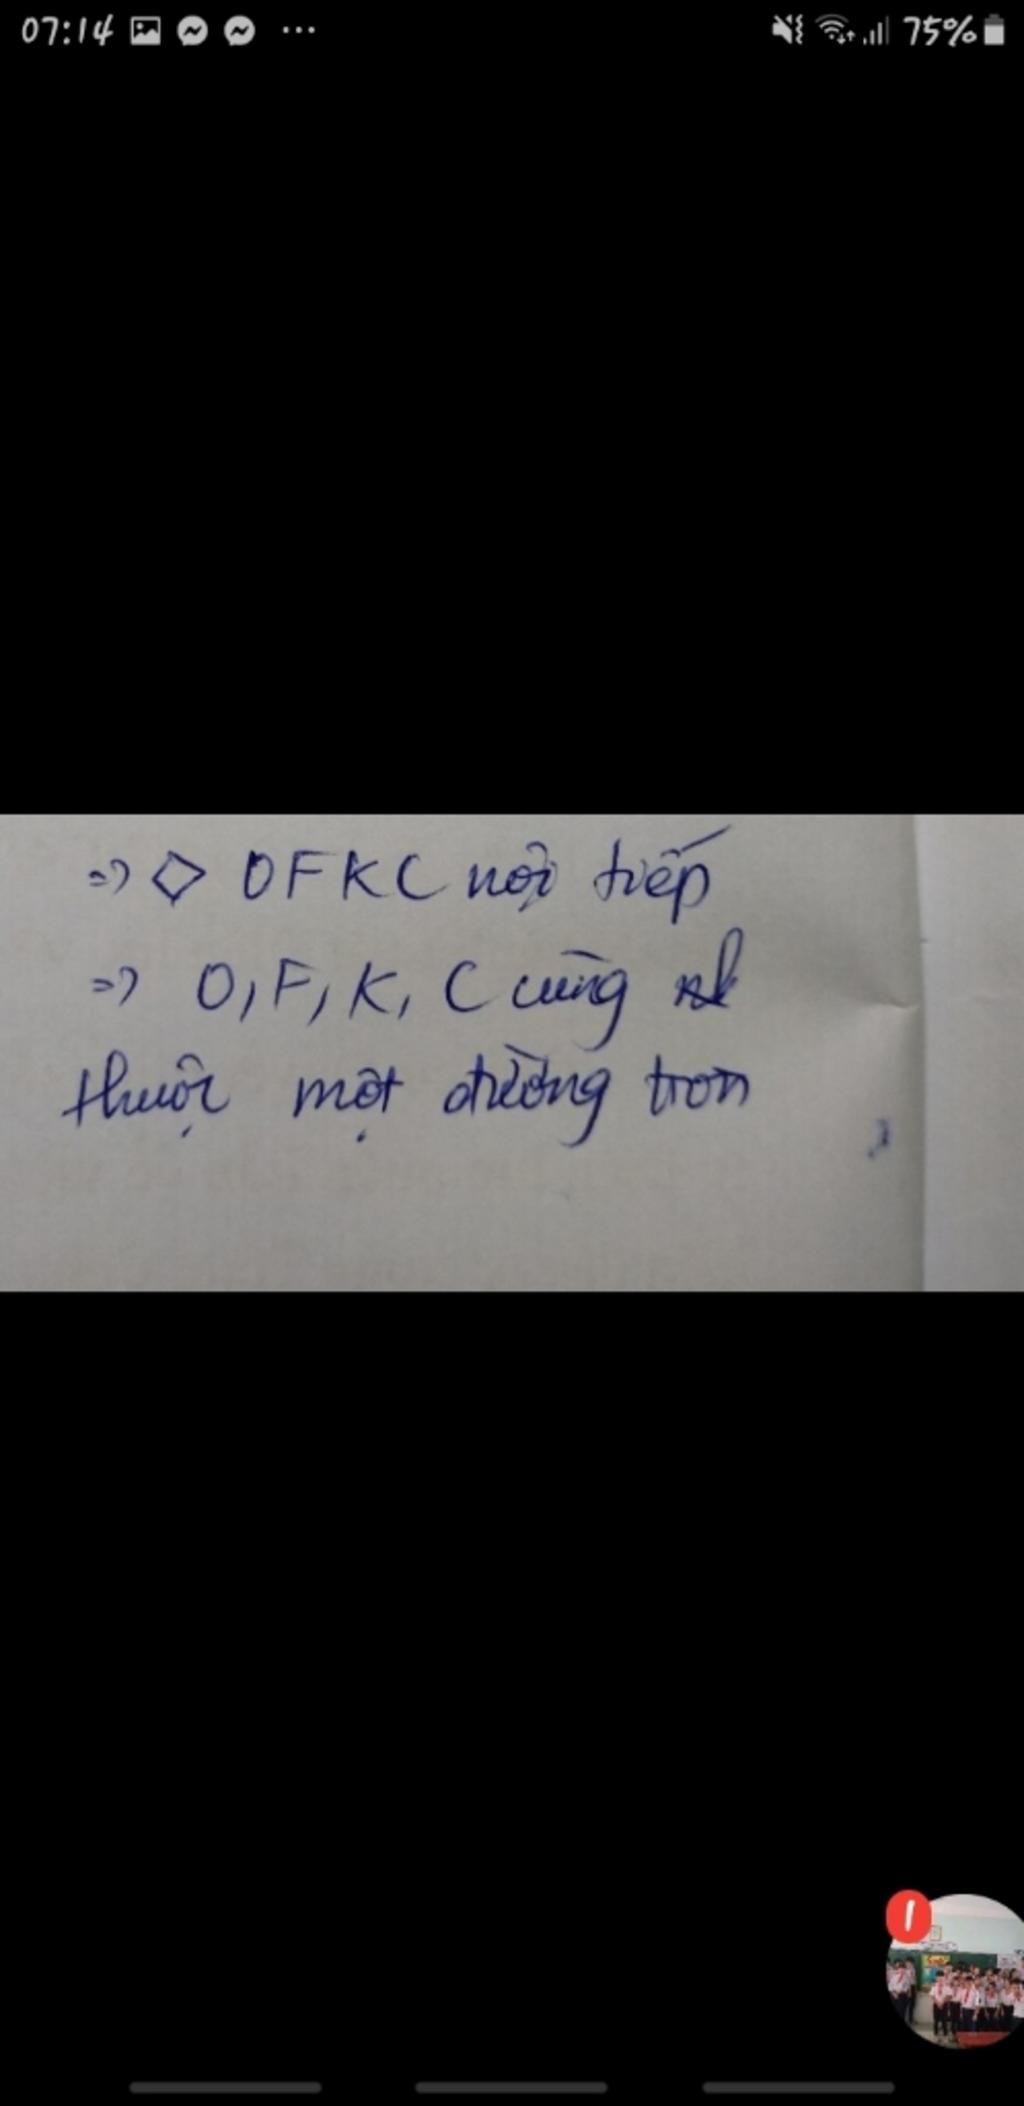 07:14 ... 75%
=> ◇ OFKC nội tiếp
=> O, F, K, C cùng
thuộc một đường tròn
1